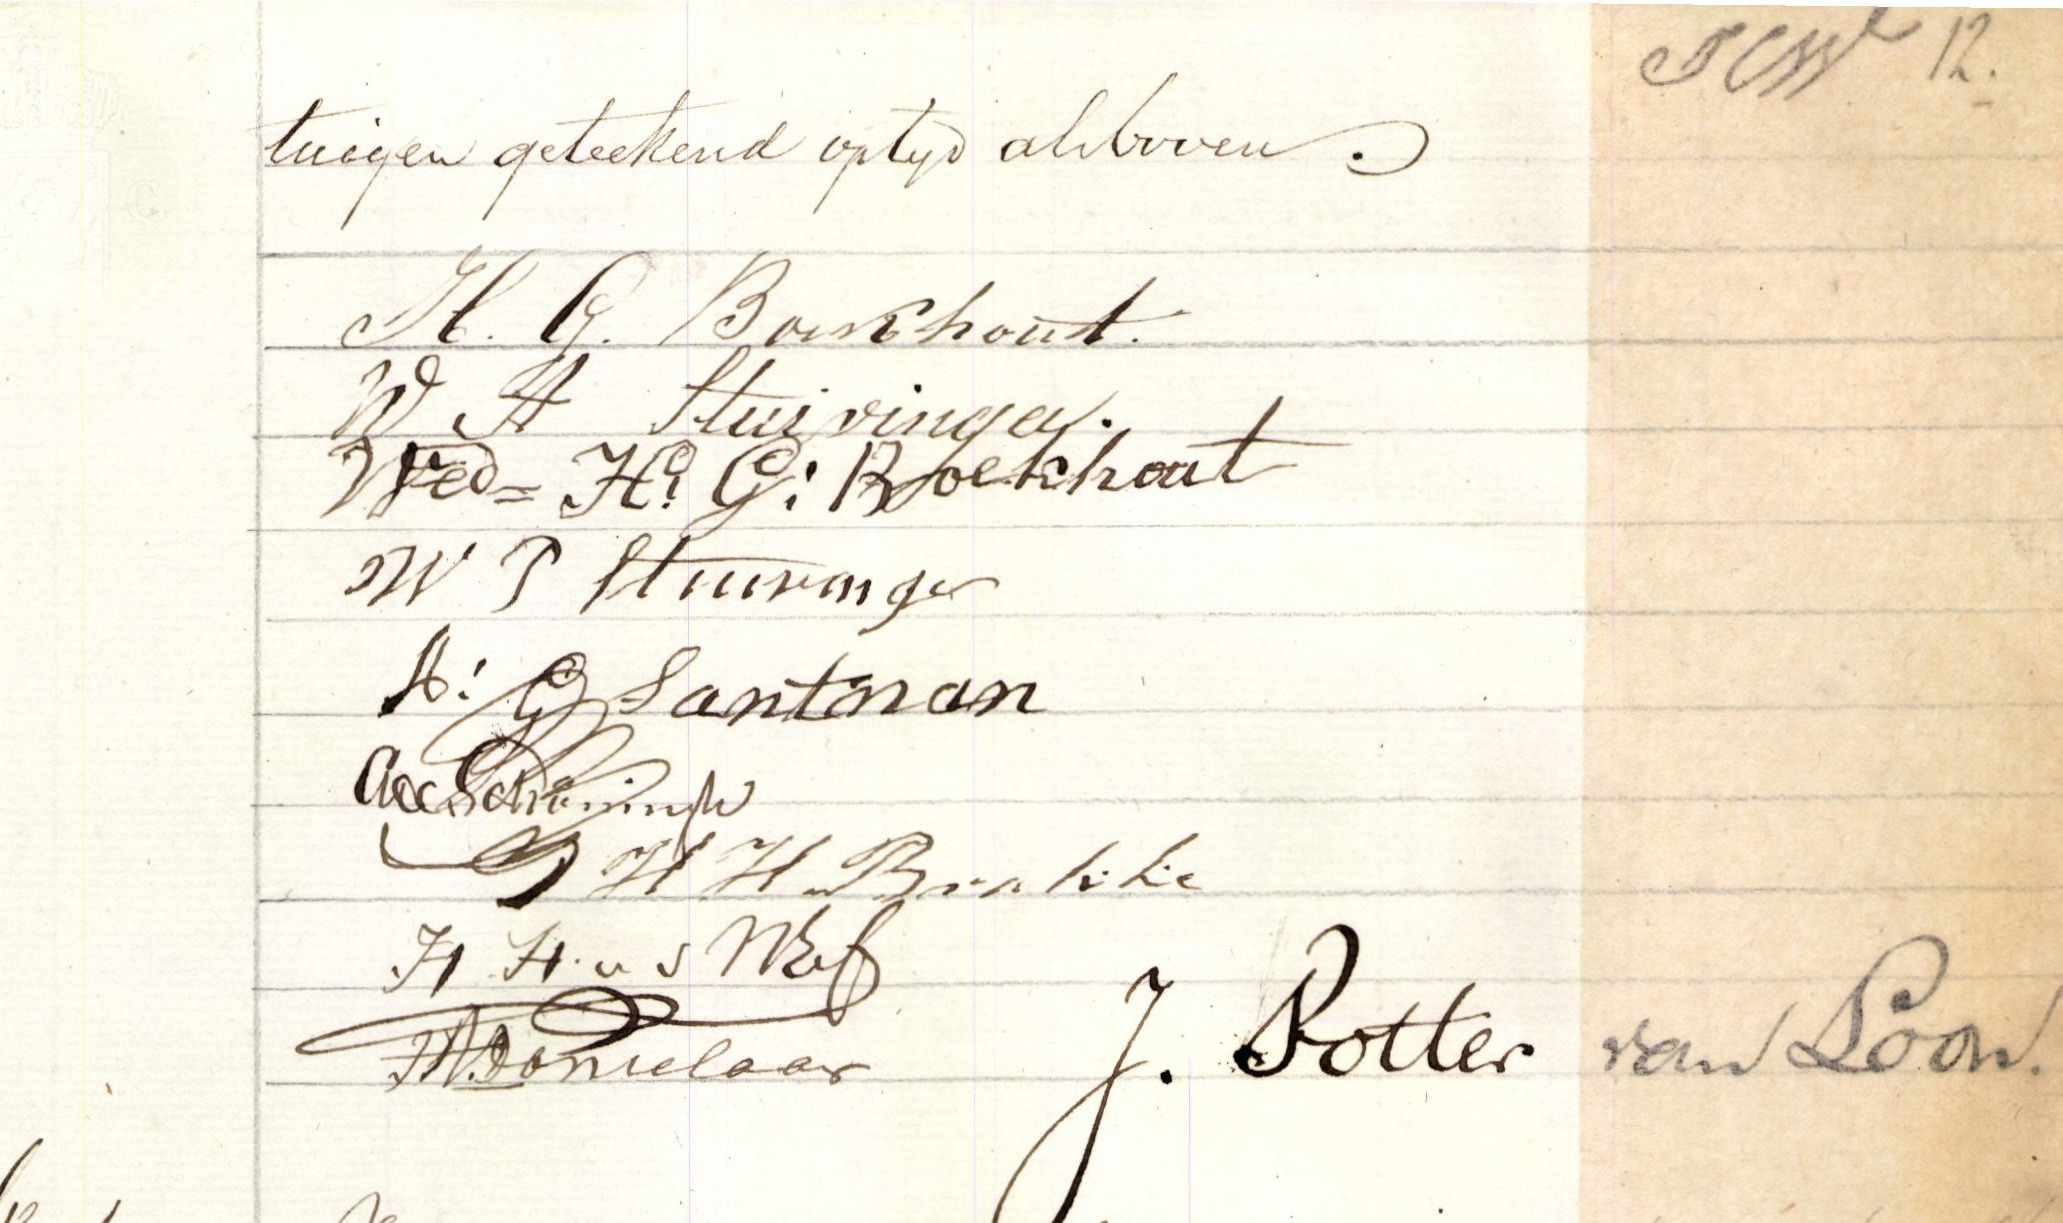 12.
tuigen geteekend op tyd alsboven.
H. G. Boekhout.
W A Stuivinga.
Wed= H: G: Boekhout
W P Stuivinga
A: G Santman
H H Brakke
H H v d Wolf
Donselaar
J. Potter van Loon.